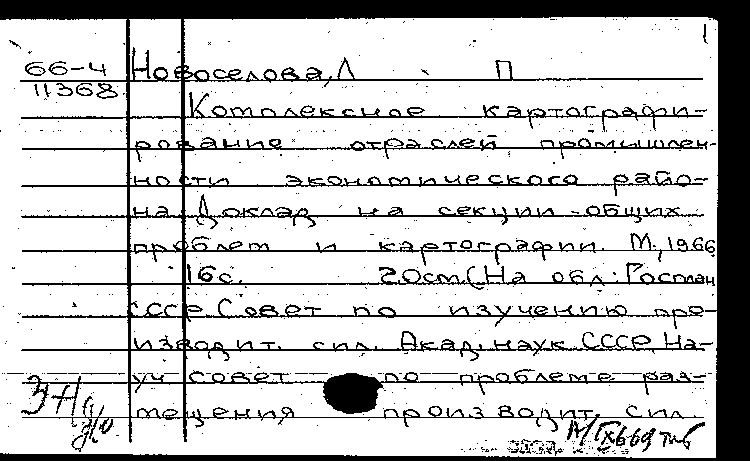 66-4 Новоселова, Л П
11368
Комплексное картографи-
рование отраслей промышлен-
ности экономического райо-
на. Доклад на секции общих
проблем и картографии. М., 1966
16с. 20см. (На обл.: Госплан
СССР. Совет по изучению про-
изводит. сил. Акад. наук СССР. На-
уч совет по проблеме раз-
мещения производит. сил.